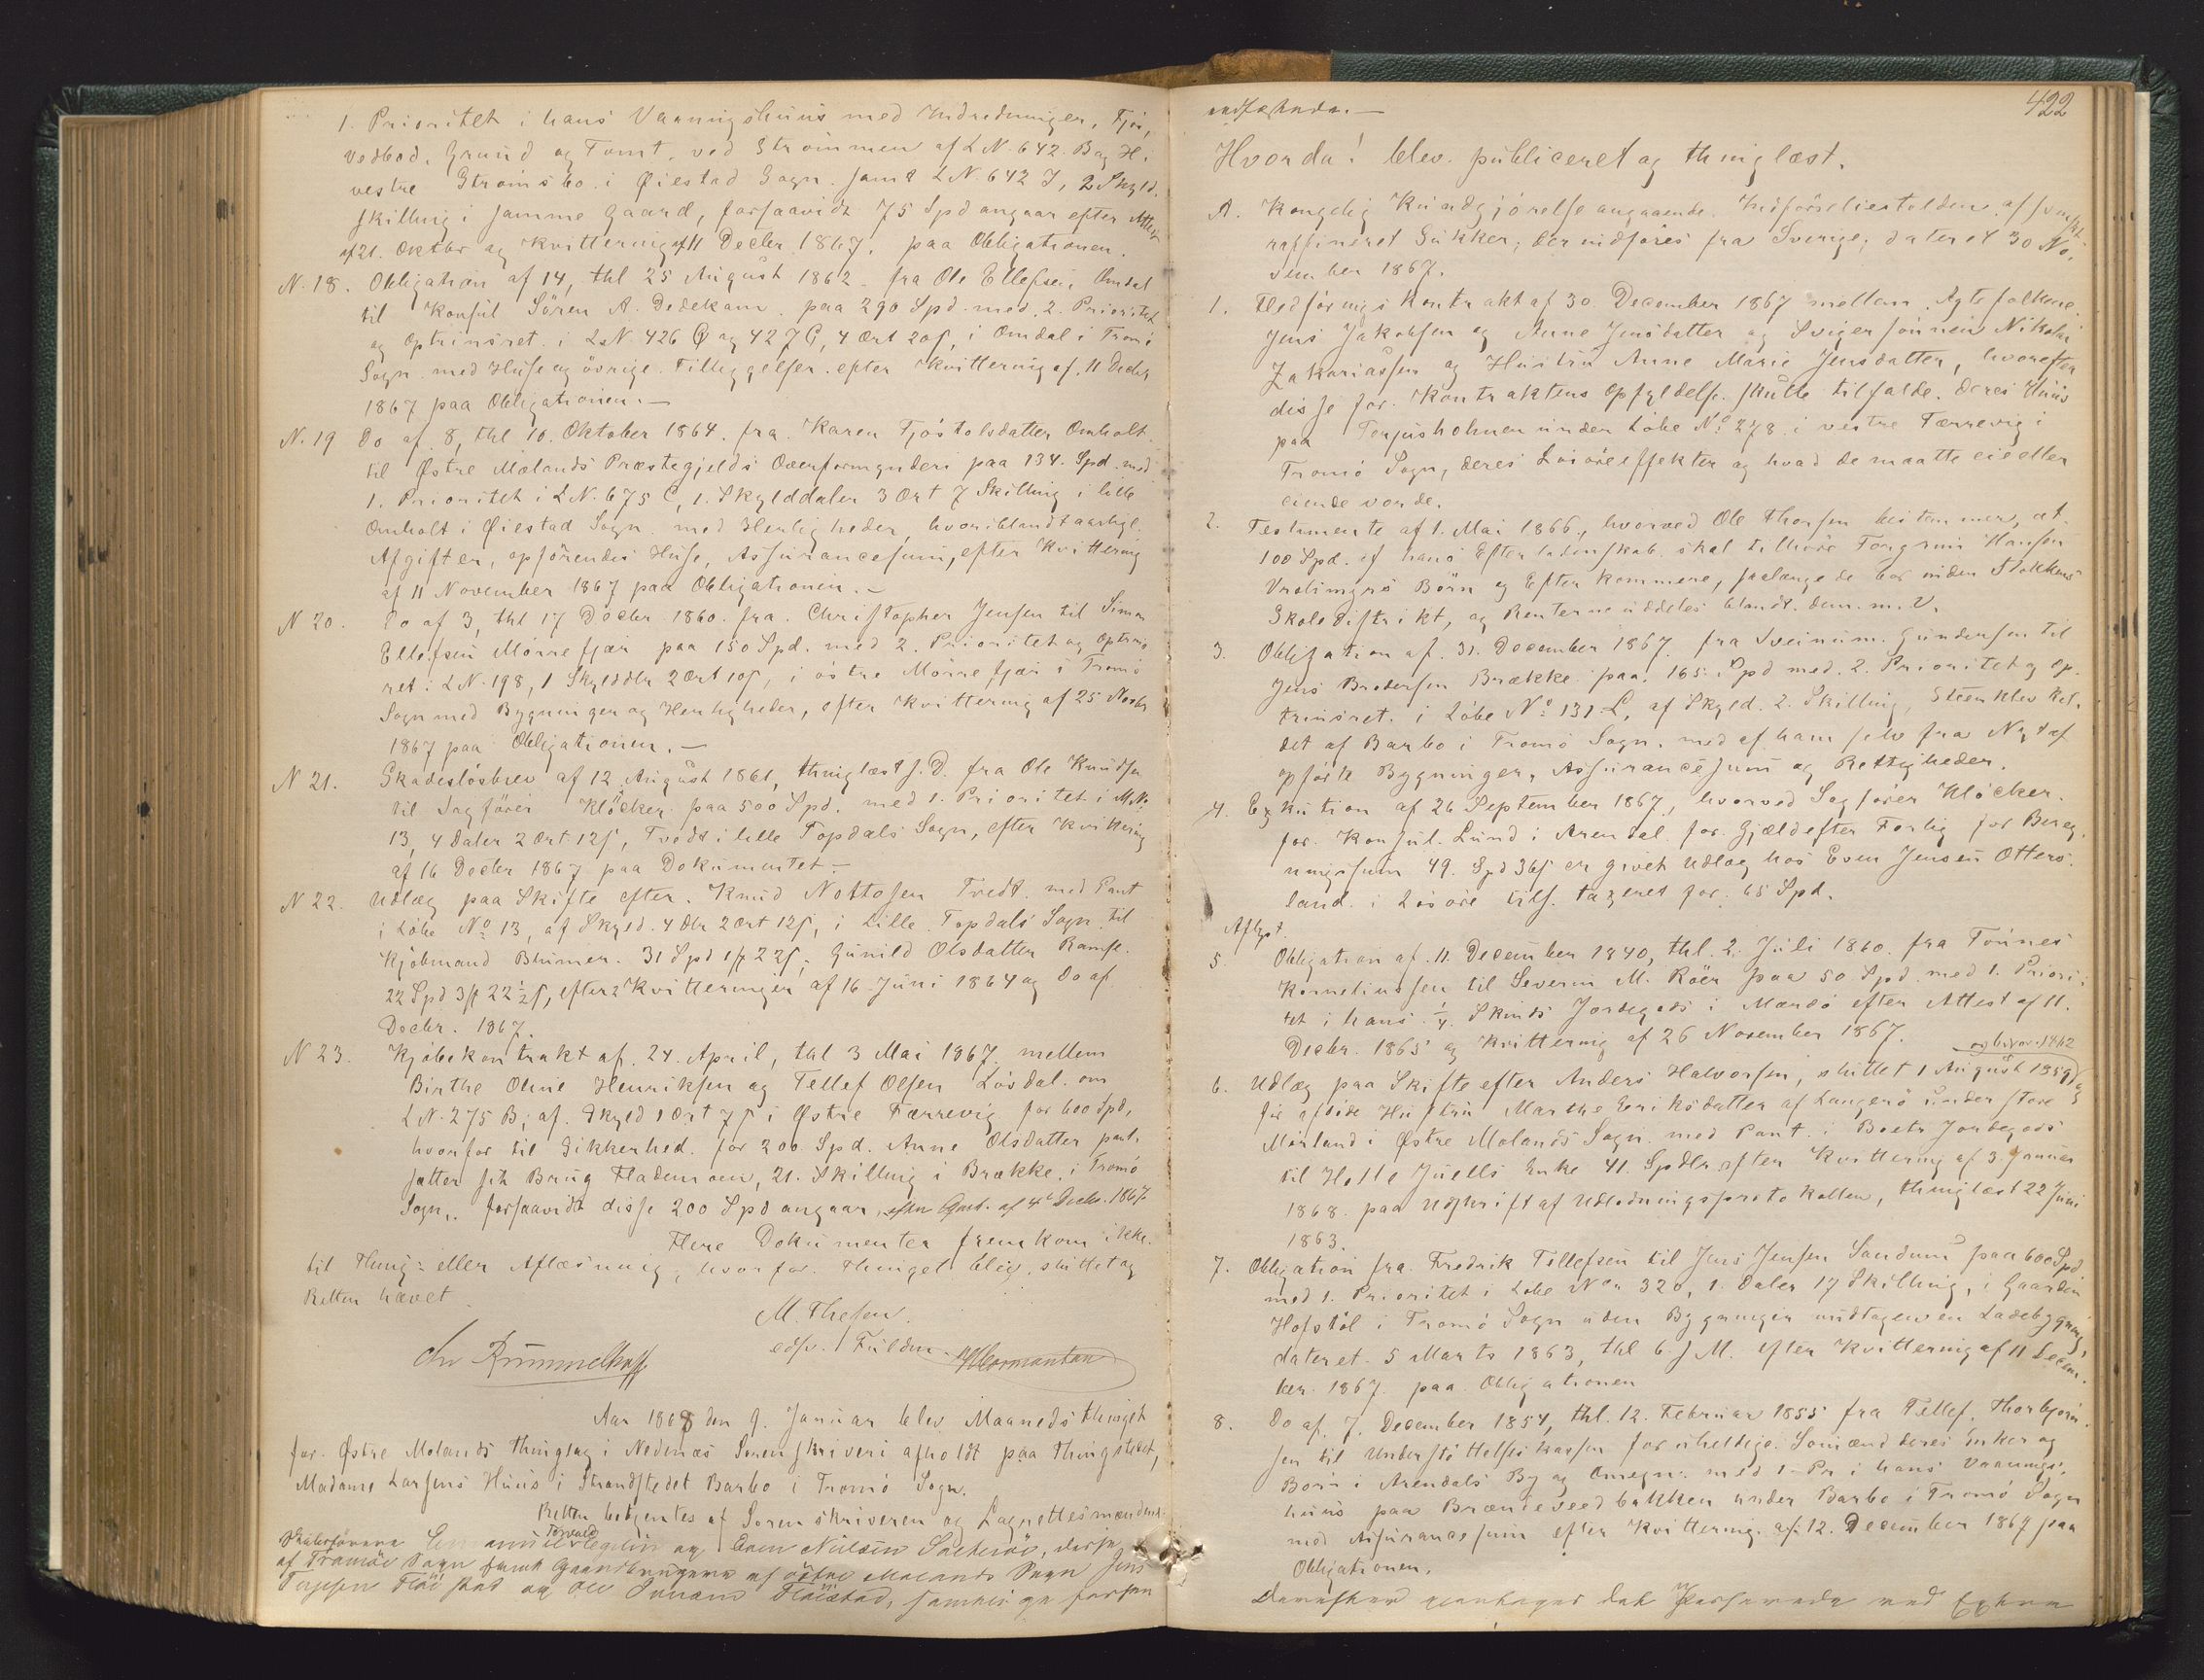 1. Prioritet i hans Vaaningshuus med Indredninger, Fjös,
Vedbod, Grund og Tomt, ved Strömmen af L N. 642 B og H i
vestre Strömsbo i Øiestad Sogn samt L N. 642 I, 2 Skyld-
skilling i samme Gaard, forsaavidt 75 Spd angaar efter Attest
af 21. Oktbr og Kvittering af 11 Decbr 1867, paa Obligationen.
N. 18. Obligation af 14, thl 25 August 1862 fra Ole Ellefsen Omdal
til Konsul Sören A. Dedekam paa 290 Spd. med 2. Prioritet
og Optrinsret i L.N. 426 G og 427 G, 4 Ort 20 s, i Omdal i Tromö
Sogn med Huse og övrige Tilliggelser efter Kvittering af 11 Decbr
1867 paa Obligationen.—
N. 19 Do af 8, thl 10. Oktober 1864 fra Karen Fjöstolsdatter Omholt
til Østre Molands Præstegjelds Overformynderi paa 134 Spd. med
1. Prioritet i L N. 675 C, 1. Skylddaler 3 Ort 7 Skilling i lille
Omholt i Øiestad Sogn med Herligheder, hvoriblandt aarlige
Afgifter, opförendes Huse, Assurancesum, efter Kvittering
af 11 November 1867 paa Obligationen.—
N 20. Do af 3, thl 17 Decbr 1860 fra Christopher Jensen til Simon
Ellefsen Mörrefjær paa 150 Spd. med 2. Prioritet og Optrins-
ret i L N. 198, 1 Skylddlr 2 Ort 10 s, i östre Mörrefjær i Tromö
Sogn med Bygninger og Herligheder, efter Kvittering af 25 Novbr
1867 paa Obligationen.—
N 21. Skadeslösbrev af 12 August 1861, thinglæst s. D. fra Ole Knudsen
til Sagförer Klöcker paa 500 Spd. med 1. Prioritet i M.No
13, 4 Daler 2 Ort 12 s, Tvedt i lille Topdals Sogn, efter Kvittering
af 16 Decbr 1867 paa Dokumentet—
N 22. Udlæg paa Skifte efter Knud Nottosen Tvedt med Pant
i Löbe No 13, af Skyld 4 Dlr 2 Ort 12 s, i Lille Topdals Sogn til
Kjöbmand Blumer 31 Spd 1 ß 22 s, Gunild Olsdatter Ramse
22 Spd 3 ß 22 ½ s, efter 2 Kvitteringer af 16 Juni 1864 og Do af
Decbr. 1867.
N 23. Kjöbekontrakt af 24. April, thl 3 Mai 1867 mellem
Birthe Oline Henriksen og Tellef Olsen Lösdal om
L N. 275 B, af Skyld 1 Ort 7 s i Østre Færrevig for 600 Spd,
hvorfor til Sikkerhed for 200 Spd. Anne Olsdatter pant-
sætter sit Brug Flademoen, 21. Skilling i Brække i Tromö
Sogn, forsaavidt disse 200 Spd angaar, efter Qvit. af 4de Decbr. 1867
Flere Dokumenter fremkom ikke
til Thing- eller Aflæsning, hvorfor Thinget blev sluttet og
Retten hævet
M. Thesen.
edsv. Fuldm.
Chr Rummelhoff
Hermantan
Aar 1868 den 9. Januar blev Maanedsthinget
for Østre Molands Thinglag i Nedenæs Sorenskriveri afholdt paa Thingstedet,
Madame Larsens Huus i Strandstedet Barbo i Tromö Sogn.
Retten betjentes af Sorenskriveren og Lagrettesmændene
og Even Nielsen, disse
af Tromöe Sogn samt Gaardbrugerne af östre Molands Sogn Jens
Terjesen og Ole Flöistad, samtlige forhen
422
edfæstede.—
Hvorda! blev publiceret og thinglæst.
A. Kongelig Kundgjörelse angaaende Indförselstolden af
raffineret Sukker, der indföres fra Sverige, dateret 30 No-
vember 1867.
1. Fledföringskontrakt af 30. December 1867 mellem Ægtefolkene
Jens Jakobsen og Anne Jensdatter og Svigersönnen Nikolai
Zakariassen og Hustru Anne Marie Jensdatter, hvorefter
disse for Kontraktens Opfyldelse skulle tilfalde deres Huus
paa Terjusholmen under Löbe No 278 i vestre Færrevig i
Tromö Sogn, deres Lösöreeffekter og hvad de maatte eie eller
eiende vorde.
2. Testamente af 1. Mai 1866, hvorved Ole Thorsen bestemmer, at
100 Spd. af hans Efterladenskab skal tilhöre Torgrim Hansen
Vrolingrs Börn og Efterkommere, saalænge de bor inden Stokkens
Skoledistrikt, og Renterne uddeles blandt dem m. V.
3. Obligation af 31. December 1867 fra Sveinum Gundersen til
Jens Brodersen Brække paa 165 Spd med 2. Prioritet og Op-
trinsret i Löbe No 131 L, af Skyld 2 Skilling, Steenklev kal-
det af Barbo i Tromö Sogn, med af ham selv fra Nyt af
opförte Bygninger, Assurancesum og Rettigheder.
4. Exkution af 26 September 1867, hvorved Sagförer Klöcker
for Konsul Lund i Arendal for Gjæld efter Forlig for Bereg-
ningssum 49 Spd 36 s er givet Udlæg hos Even Jensen Otters-
land i Lösöre tils. taxeret for 65 Spd.
Aflyst.
5. Obligation af 11. December 1840, thl. 2. Juli 1860 fra Tönnes
Korneliussen til Severin M. Röer paa 50 Spd. med 1. Priori-
tet i hans ¼ Skinds Jordegods i Mærdö efter Attest af 11.
Decbr. 1865 og Kvittering af 26 November 1867.
og 6 Novbr 1862
6. Udlæg paa Skifte efter Anders Halvorsen, sluttet 1 August 1859
för afdöde Hustru Marthe Eriksdatter af Langerö under store
Mörland i Østre Molands Sogn med Pant i Boets Jordegods
til Helle Juells Enke 41 Spdlr efter Kvittering af 3 Januar
1868 paa Udskrift af Udlodningsprotokollen, thinglæst 22 Juni
1863.
7. Obligation fra Fredrik Tellefsen til Jens Jensen Sandum paa 600 Spd
med 1. Prioritet i Löbe No 320, 1. Daler 17 Skilling, i Gaarden
Hofstöl i Tromö Sogn uden Bygninger undtagen en Ladebygning,
dateret 5 Marts 1863, thl 6 s M. efter Kvittering af 11 Decem-
ber 1867 paa Obligationen
8. Do af 7. December 1854, thl. 12. Februar 1855 fra Tellef Thorbjörn-
sen til Understöttelseskassen for uheldige Sömænd deres Enker og
Börn i Arendals By og Omegn med 1 Pr i hans Vaanings-
huus paa Brændeveedbakken under Barbo i Tromö Sogn
med Assurancesum efter Kvittering af 12. December 1867 paa
Obligationen.